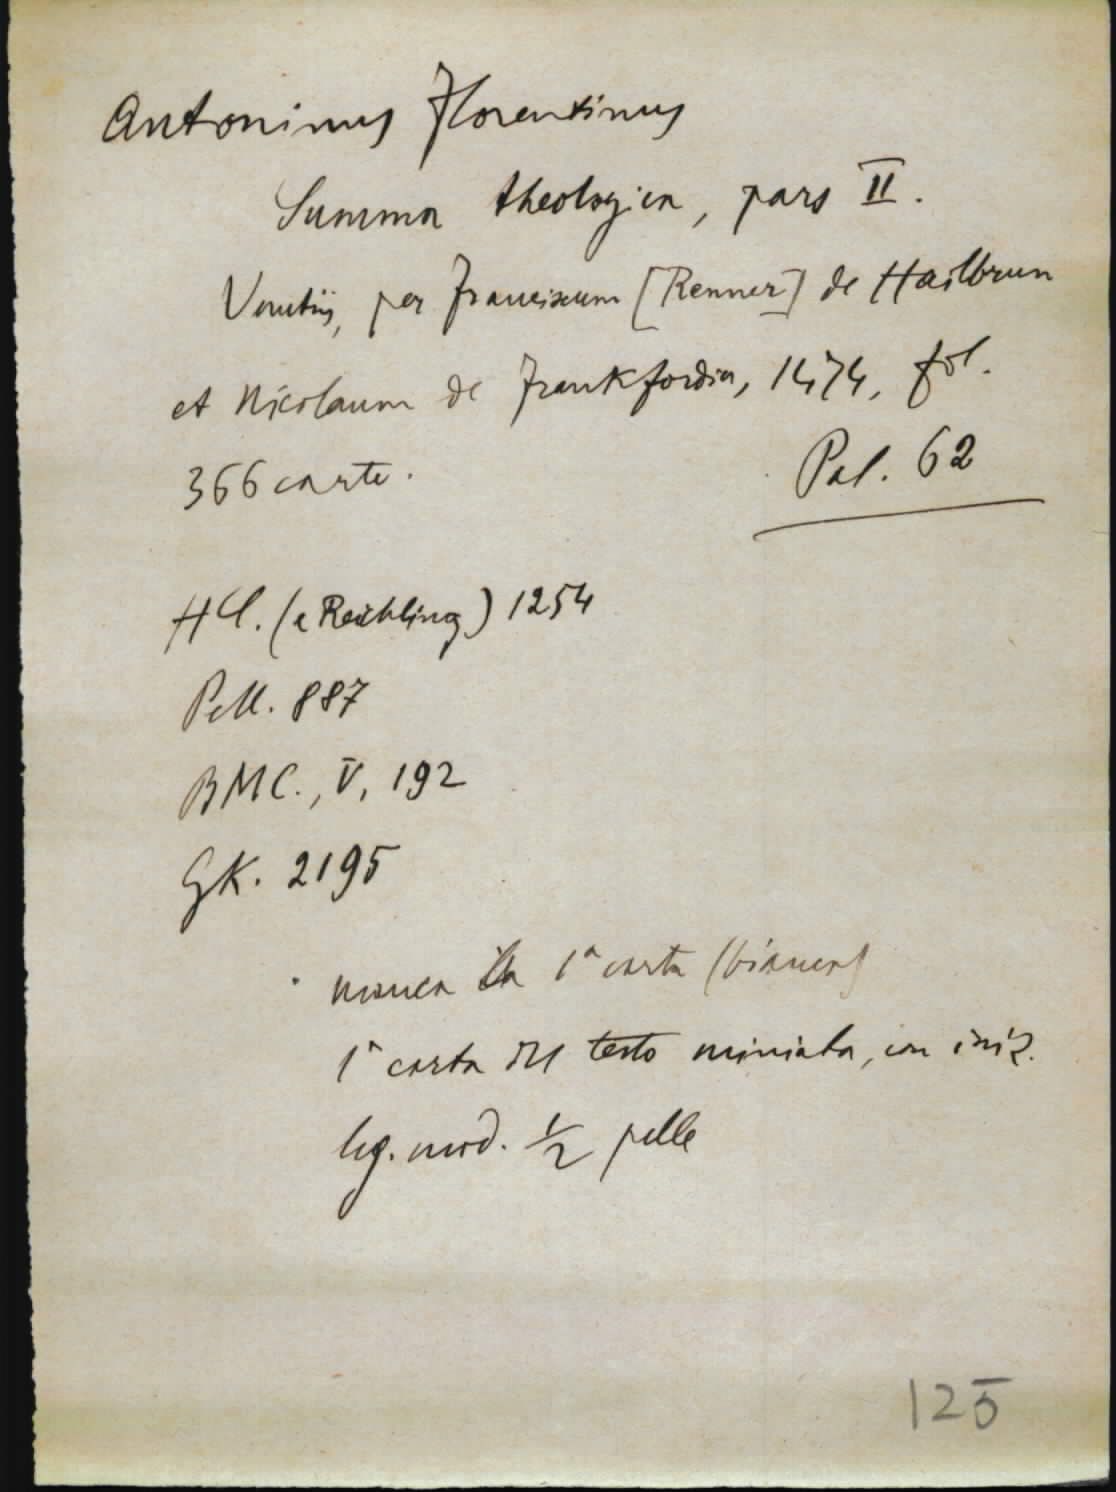 Antoninus Florentinus
Summa theologica, pars II.
Venetiis, per Franciscum [Renner] de Hailbrun
et Nicolaum de Frankfordia, 1474, fol.
366 carte.
Pal. 62
HC. (e Reichling) 1254
Pell. 887
BMC., V, 192
GK. 2195
manca la 1ª carta (bianca)
1ª carta del testo miniata, con iniz.
leg. mod. 1/2 pelle
125